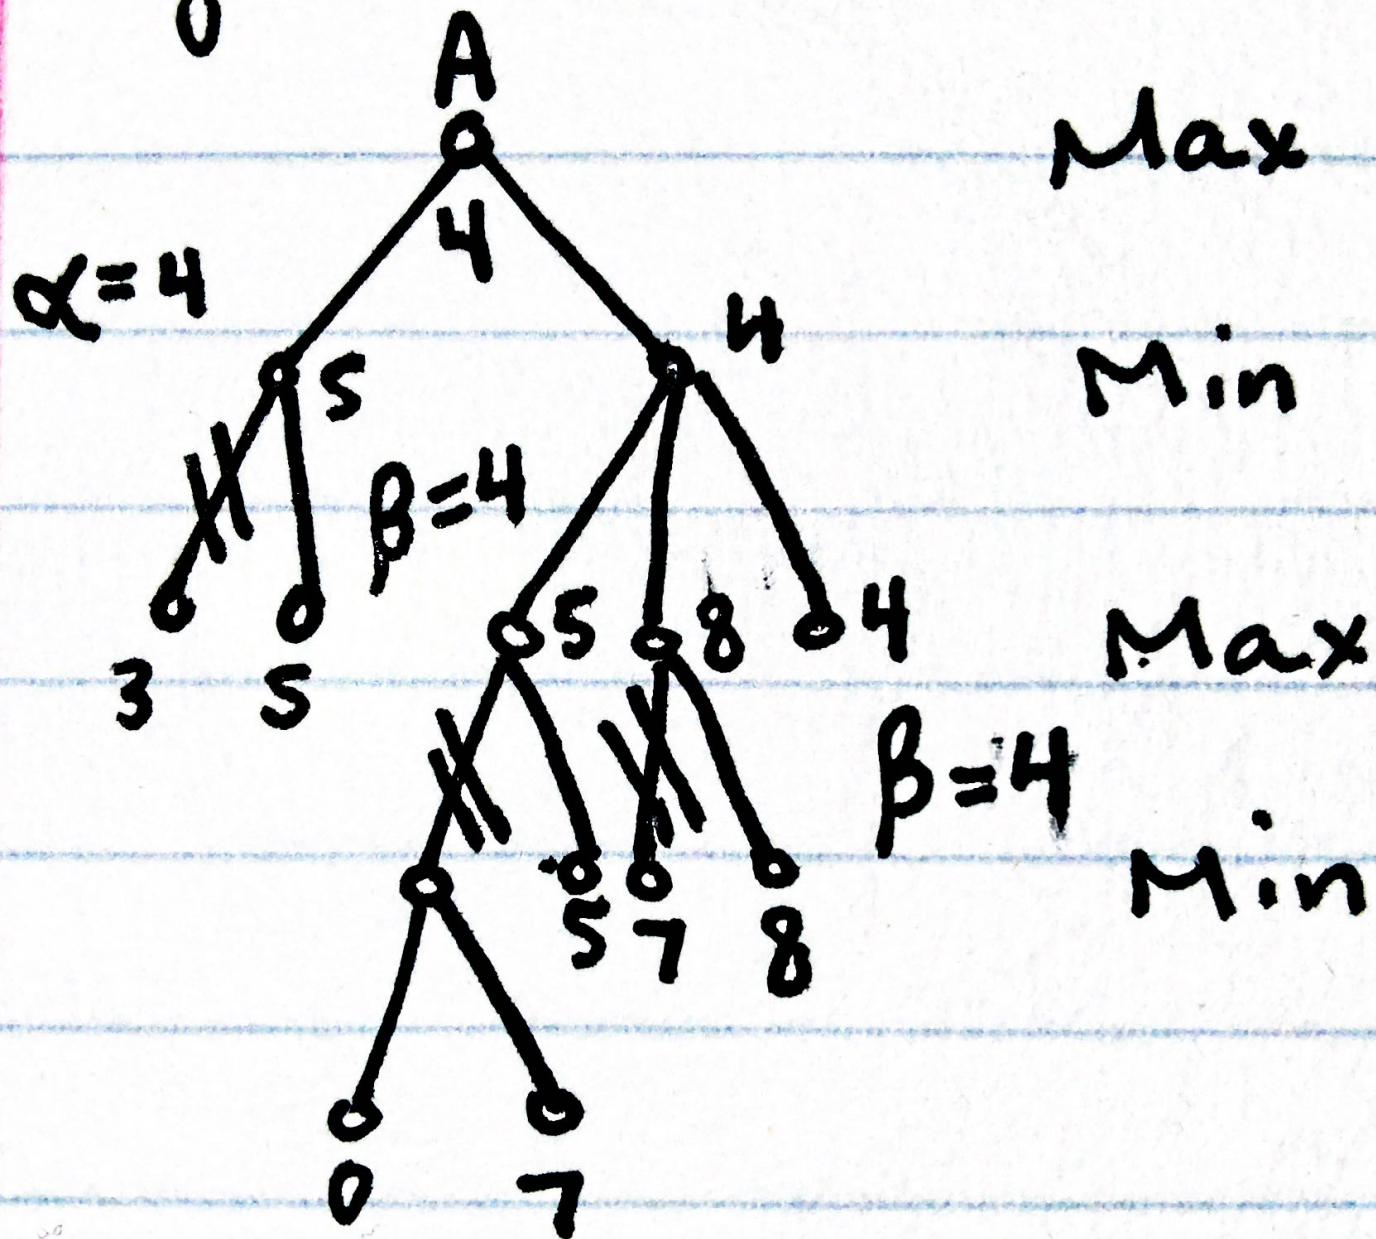 0
A
Max
4
α=4
4
5
Min
β=4
5
8
4
3
5
Max
β=4
5
7
8
Min
0
7